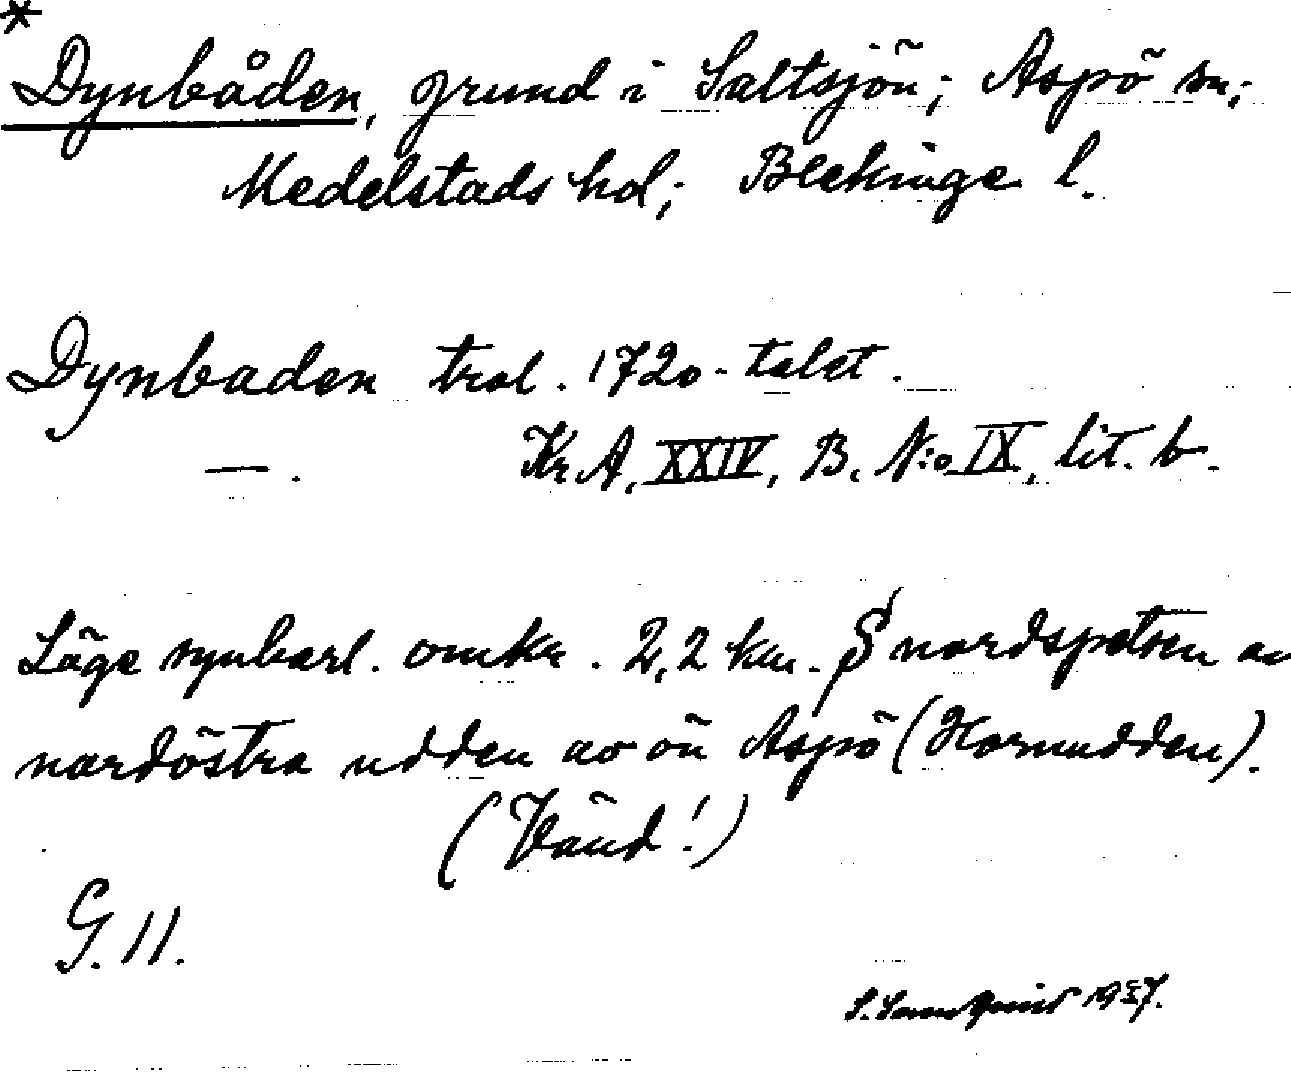 *
Dynbåden, grund i Saltsjön; Aspö sn;
Medelstads hd; Blekinge l.
Dynbaden trol. 1720-talet.
—. Kr. A. XXIV, B. N:o IX, lit. b.
Läge synbarl. omkr. 2,2 km. S nordspetsen av
nordöstra udden av ön Aspö (Hornudden).
(Vänd!)
G. 11.
S. 1937.